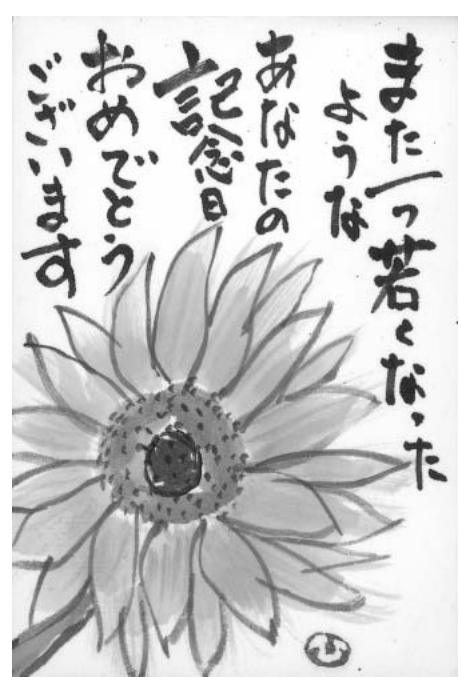 また一つ若くなった
ような
あなたの
記念日
おめでとう
ございます